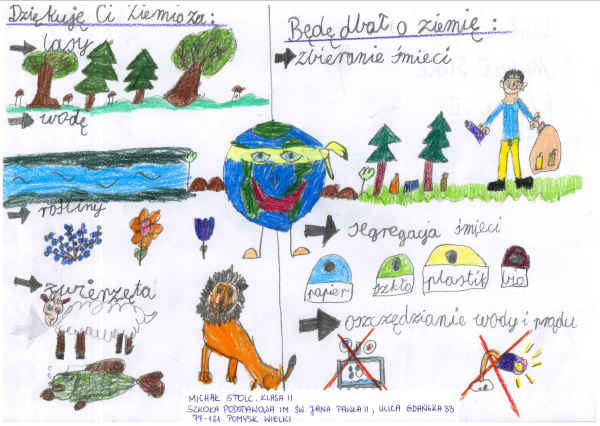 Dziękuję Ci Ziemio za:
lasy
wodę
rośliny
zwierzęta
Będę dbał o ziemię:
zbieranie śmieci
segregacja śmieci
papier
szkło
plastik
bio
oszczędzianie wody i prądu
MICHAŁ STOLC, KLASA II
SZKOŁA PODSTAWOWA IM. ŚW. JANA PAWŁA II, ULICA GDAŃSKA 33
77-121 POMYSK WIELKI